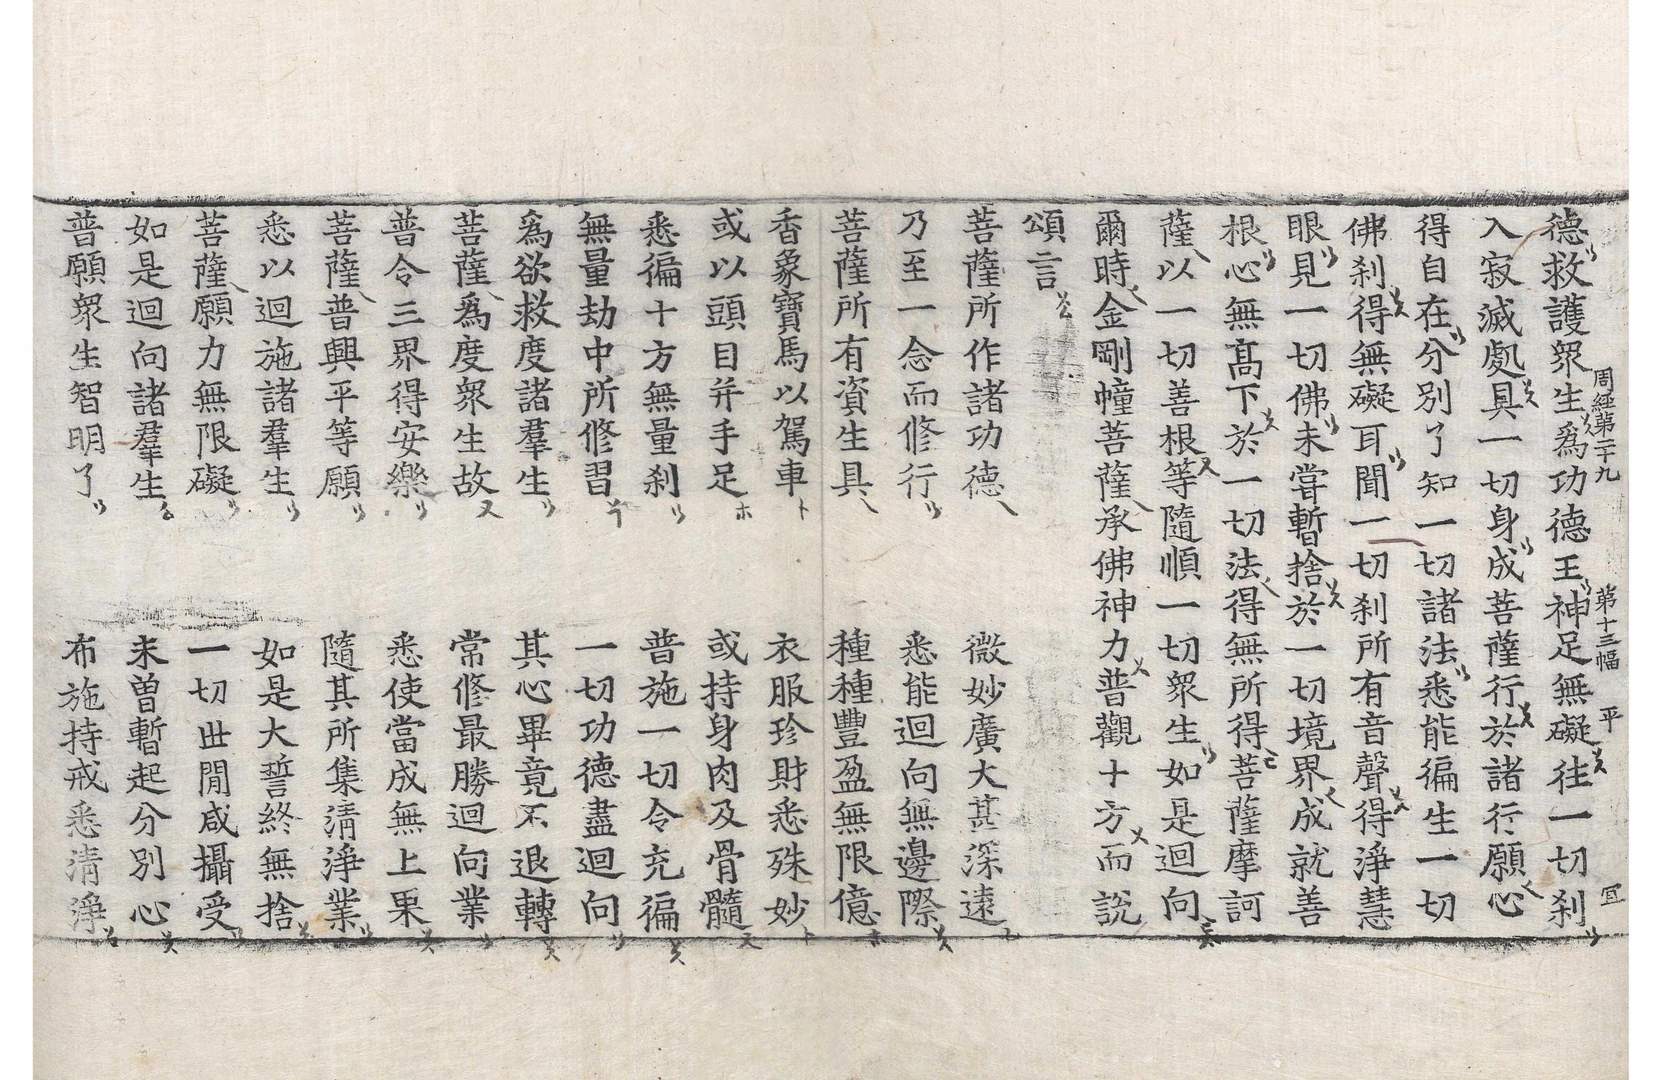 周經第二十九　第十三幅　平　宜
德救護衆生爲功德王神足無礙往一切刹
入寂滅處具一切身成菩薩行於諸行願心
得自在分別了知一切諸法悉能徧生一切
佛刹得無礙耳聞一切刹所有音聲得淨慧
眼見一切佛未嘗暫捨於一切境界成就善
根心無高下於一切法得無所得菩薩摩訶
薩以一切善根等隨順一切衆生如是迴向
爾時金剛幢菩薩承佛神力普觀十方而說
頌言
菩薩所作諸功德　微妙廣大甚深遠
乃至一念而修行　悉能迴向無邊際
菩薩所有資生具　種種豐盈無限億
香象寶馬以駕車　衣服珍財悉殊妙
或以頭目并手足　或持身肉及骨髓
悉徧十方無量刹　普施一切令充徧
無量劫中所修習　一切功德盡迴向
爲欲救度諸羣生　其心畢竟不退轉
菩薩爲度衆生故　常修最勝迴向業
普令三界得安樂　悉使當成無上果
菩薩普興平等願　隨其所集清淨業
悉以迴施諸羣生　如是大誓終無捨
菩薩願力無限礙　一切世閒咸攝受
如是迴向諸羣生　未曾暫起分別心
普願衆生智明了　布施持戒悉清淨